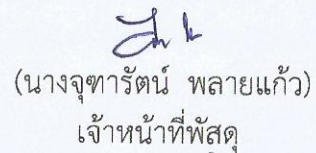 (นางจุฑารัตน์ พลายแก้ว)
เจ้าหน้าที่พัสดุ